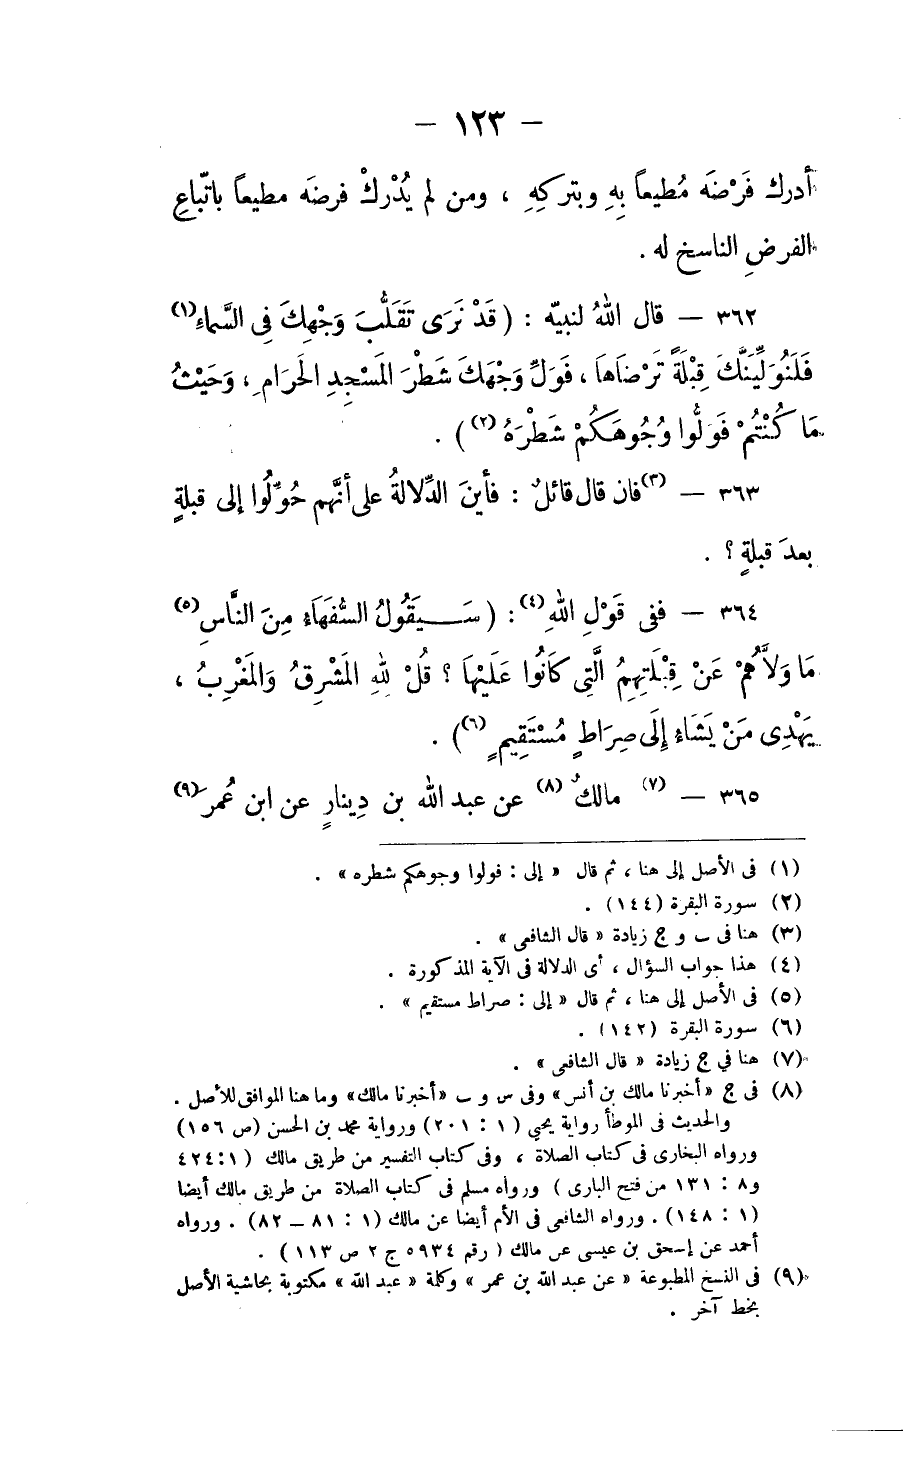 — ١٢٣ —
أدرك فَرْضَه مُطيعاً بِهِ وبتركِهِ ، ومن لم يُدْركْ فرضَه مطيعاً باتّباعِ
الفرضِ الناسخِ له .
٣٦٢ — قال اللهُ لنبيّه : ( قَدْ نَرَى تَقَلُّبَ وَجْهِكَ فِى السَّمَاءِ(١)
فَلَنُوَلِّيَنَّكَ قِبْلَةً تَرْضَاهَا ، فَوَلِّ وَجْهَكَ شَطْرَ المَسْجِدِ الحَرَامِ ، وَحَيْثُ
مَا كُنْتُمْ فَوَلُّوا وُجُوهَكُمْ شَطْرَهُ(٢) ) .
٣٦٣ — (٣)فان قال قائلٌ : فأينَ الدِّلالةُ على أنَّهم حُوِّلُوا إلى قبلةٍ
بعدَ قبلةٍ ؟ .
٣٦٤ — ففى قَوْلِ اللهِ(٤) : ( سَـيَقُولُ السُّفَهَاءُ مِنَ النَّاسِ(٥)
مَا وَلاَّهُمْ عَنْ قِبْلَتِهِمُ الَّتِى كَانُوا عَلَيْهَا ؟ قُلْ لِلهِ المَشْرِقُ وَالمَغْرِبُ ،
يَهْدِى مَنْ يَشَاءُ إِلَى صِرَاطٍ مُسْتَقِيمٍ(٦) ) .
٣٦٥ — (٧) مالكٌ(٨) عن عبد الله بن دِينارٍ عن ابن عُمرَ(٩)
(١) فى الأصل إلى هنا ، ثم قال « إلى : فولوا وجوهكم شطره » .
(٢) سورة البقرة (١٤٤) .
(٣) هنا فى ب و ج زيادة « قال الشافعى » .
(٤) هذا جواب السؤال ، أى الدلالة فى الآية المذكورة .
(٥) فى الأصل إلى هنا ، ثم قال « إلى : صراط مستقيم » .
(٦) سورة البقرة (١٤٢) .
(٧) هنا في ج زيادة « قال الشافعى » .
(٨) فى ج «أخبرنا مالك بن أنس» وفى س و ب «أخبرنا مالك» وما هنا الموافق للأصل .
والحديث فى الموطأ رواية يحيي (١ : ٢٠١) ورواية محمد بن الحسن (ص ١٥٦)
ورواه البخارى فى كتاب الصلاة ، وفى كتاب التفسير من طريق مالك (١ : ٤٢٤
و٨ : ١٣١ من فتح البارى ) ورواه مسلم فى كتاب الصلاة من طريق مالك أيضا
(١ : ١٤٨) . ورواه الشافعى فى الأم أيضا عن مالك (١ : ٨١ – ٨٢) . ورواه
أحمد عن إسحق بن عيسى عن مالك ( رقم ٥٩٣٤ ج ٢ ص ١١٣ ) .
(٩) فى النسخ المطبوعة « عن عبد الله بن عمر » وكلمة « عبد الله » مكتوبة بحاشية الأصل
بخط آخر .